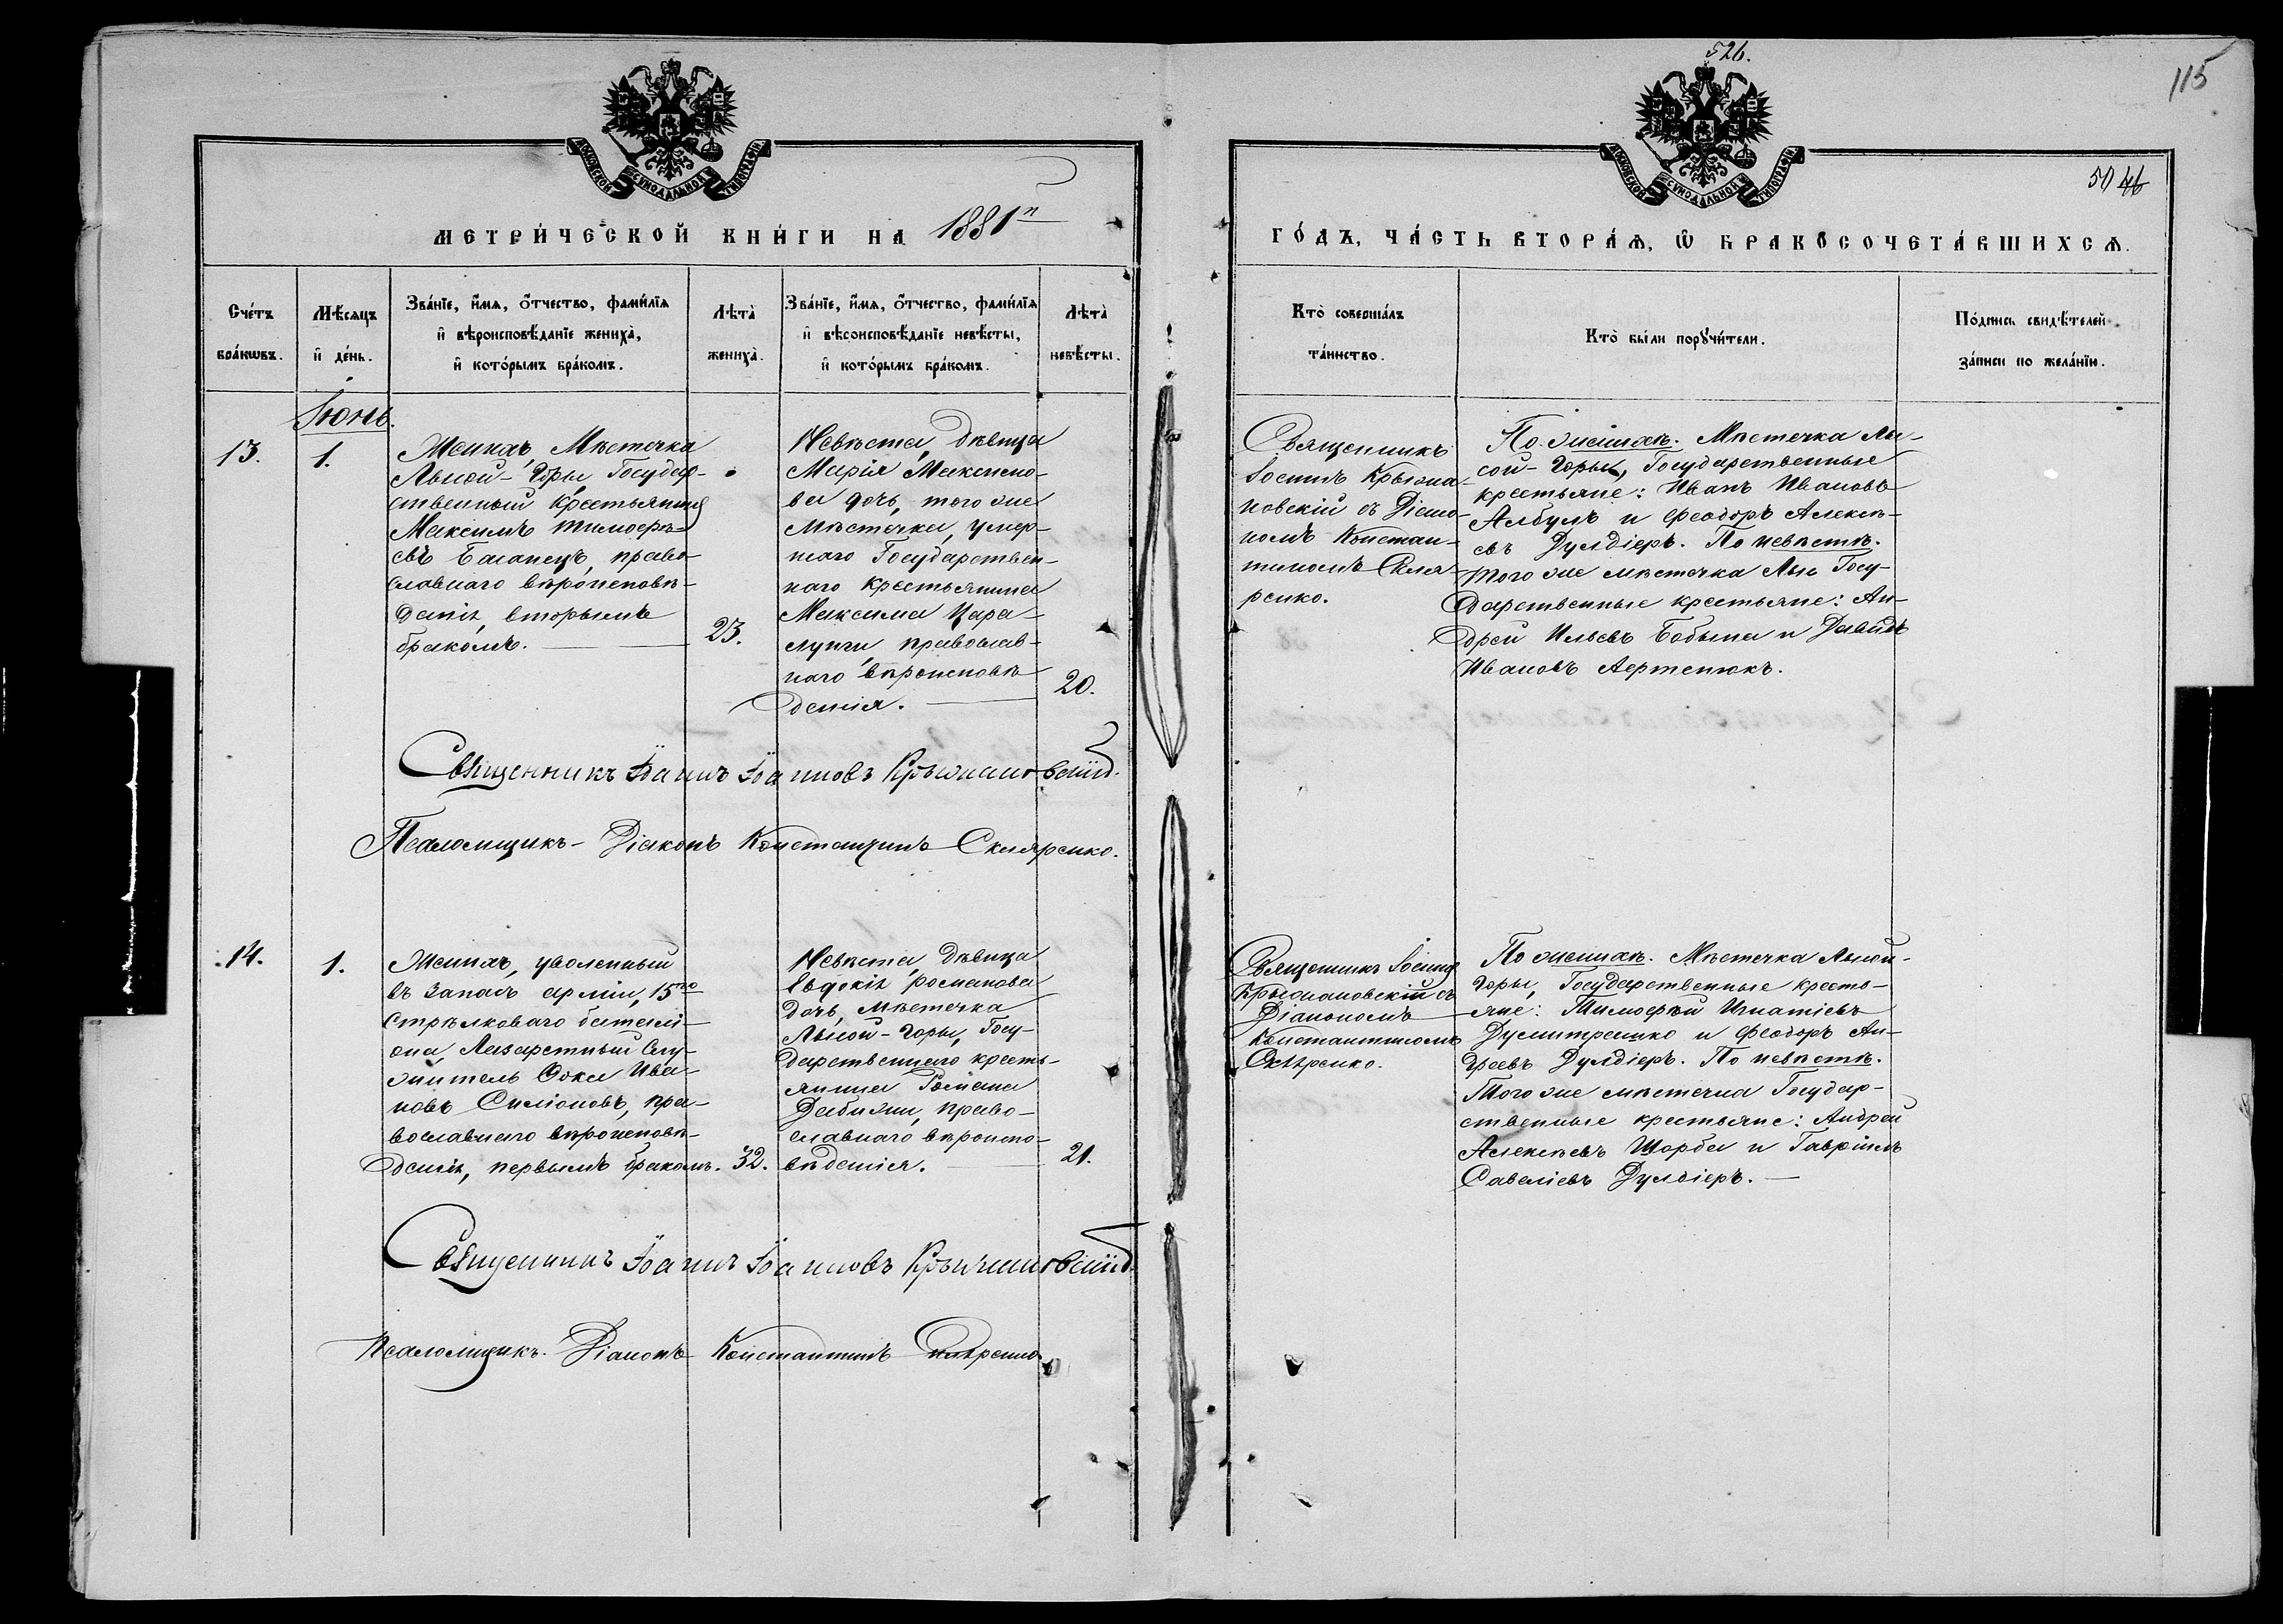 526.
115
50 46
МОСКОВСКОЙ СѴНОДАЛЬНОЙ ТИПОГРАФІИ
МОСКОВСКОЙ СѴНОДАЛЬНОЙ ТИПОГРАФІИ
МЕТРИ́ЧЕСКОЙ КНИ́ГИ НА 1881й
ГО́ДЪ, ЧА́СТЬ ВТОРА́Ѧ, Ѡ҆ БРАКОСОЧЕТА́ВШИХСѦ.
Сче́тъ бра́кѡвъ.
Мѣ́сяцъ и҆ де́нь.
Зва́нїе, и҆́мѧ, ѻ҆́тчество, фами́лїѧ
и҆ вѣроисповѣ́данїе жениха̀,
и҆ кото́рымъ бра́комъ.
Лѣта̀ жениха̀.
Зва́нїе, и҆́мѧ, ѻ҆́тчество, фами́лїѧ
и҆ вѣроисповѣ́данїе невѣ́сты,
и҆ кото́рымъ бра́комъ.
Лѣта̀ невѣ́сты.
Кто̀ соверша́лъ та́инство.
Кто̀ бы́ли порꙋчи́тели.
По́дпись свидѣ́телей за́писи по жела́нїю.
Іюнь.
13.
1.
Женихъ, Мѣстечка
Лысой-Горы, Государ-
ственный Крестьянинъ
Максимъ Тимофѣ-
евъ Баланецъ, право-
славнаго вѣроисповѣ-
данія, вторымъ
бракомъ.
23.
Невѣста, дѣвица
Марія Максимо-
ва дочь, того же
мѣстечка, умер-
шаго Государствен-
наго крестьянина
Максима Цара-
лунги, православ-
наго вѣроисповѣ
данія.
20.
Священникъ
Іоаннъ Крыжа-
новскій съ Діако-
номъ Констан-
тиномъ Скля-
ренко.
По женихѣ. Мѣстечка Лы-
сой-Горы, Государственные
крестьяне: Иванъ Ивановъ
Албулъ и Феодоръ Алексѣ-
евъ Дулдіеръ. По невѣстѣ.
Того же мѣстечка Лыс Госу-
дарственные крестьяне: Ан-
дрей Ильевъ Бобына и Давидъ
Ивановъ Лертенюкъ.
Священникъ Іоаннъ Іоанновъ Крыжановскій.
Псаломщикъ-Діаконъ Константинъ Скляренко.
14.
1.
Женихъ, уволенный
въ запасъ арміи, 15го
Стрѣлковаго баталі-
она, Лазаретный Слу-
житель Фока Ива-
новъ Симіоновъ, пра-
вославнаго вѣроисповѣ-
данія, первымъ бракомъ.
32.
Невѣста, дѣвица
Евдокія Романова
дочь, мѣстечка
Лысой-Горы, Госу-
дарственнаго кресть-
янина Романа
Дабижи, право-
славнаго вѣроиспо-
вѣданія.
21.
Священникъ Іоаннъ
Крыжановскій съ
Діакономъ
Константиномъ
Скляренко.
По женихѣ. Мѣстечка Лысой-
Горы, Государственные кресть-
яне: Тимофей Игнатіевъ
Думитрашко и Феодоръ Ан-
дреевъ Дулдіеръ. По невѣстѣ.
Того же мѣстечка Государ-
ственные крестьяне: Андрей
Алексѣевъ Шорба и Гавріилъ
Савеліевъ Дулдіеръ.
Священникъ Іоаннъ Іоанновъ Крыжановскій.
Псаломщикъ-Діаконъ Константинъ Скляренко.